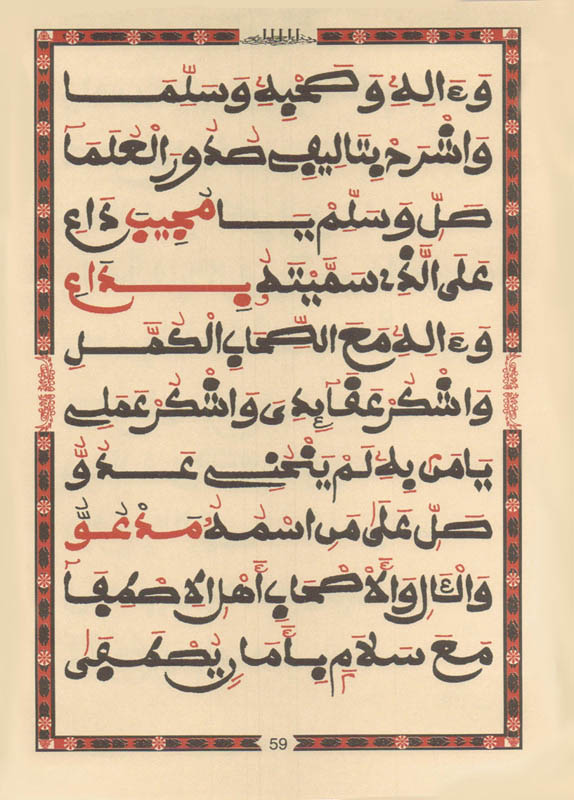 وَءَالِهِ وَصَحْبِهِ وَسَلِّمَا
وَاشْرَحْ بِتَالِيفِي صُدُورَ الْعُلَمَا
صَلِّ وَسَلِّمْ يَا مُجِيبَ دَاعِ
عَلَى الَّذِي سَمَّيْتَهُ بِدَاعِ
وَءَالِهِ مَعَ الصِّحَابِ الْكُمَّلِ
وَاشْكُرْ عَقَائِدِي وَاشْكُرْ عَمَلِي
يَا مَن بِهِ لَمْ يَنْحُنِي عَدُوُّ
صَلِّ عَلَى مَنِ اسْمُهُ مَدْعُوُّ
وَالْآلِ وَالْأَصْحَابِ أَهْلِ الِاصْطِفَا
مَعَ سَلَامٍ بِأَمَانٍ
59